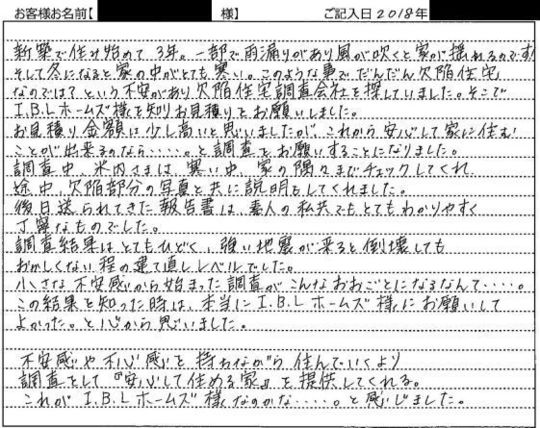 お客様お名前【 様】 ご記入日2018年
新築で住み始めて3年。一部で雨漏りがあり風が吹くと家が揺れるのです!
そして冬になると家の中がとても寒い。このような事でだんだん欠陥住宅
なのでは?という不安があり欠陥住宅調査会社を探していました。そこで
I.B.Lホームズ様を知りお見積りをお願いしました。
お見積り金額は少し高いと思いましたが、これから安心して家に住む
ことが出来るのなら・・・・・。と調査をお願いすることになりました。
調査中、米内さまは、寒い中、家の隅々までチェックしてくれ
途中、欠陥部分の写真と共に説明もしてくれました。
後日送られてきた報告書は、素人の私共でもとてもわかりやすく
丁寧なものでした。
調査結果はとてもひどく、強い地震が来ると倒壊しても
おかしくない程の建て直しレベルでした。
小さな不安感から始まった調査がこんなおおごとになるなんて・・・・。
この結果を知った時は、本当にI.B.Lホームズ様にお願いして
よかった。と心から思いました。
不安感や不心感を持ちながら住んでいくより
調査をして『安心して住める家』を提供してくれる。
これがI.B.Lホームズ様なのかな・・・・・。と感じました。